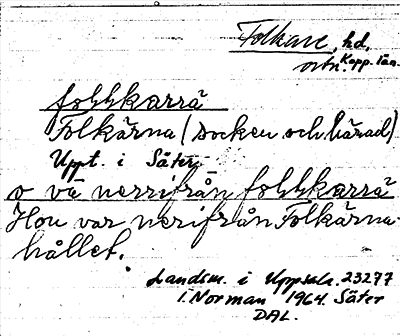 Folkare, hd.
ortn. Kopp. län.
follkarrä
Folkärna (socken och härad)
Uppt. i Säter
o va nerrifrån follkkarrä
Hon var nerifrån Folkärna-
hållet.
Landsm. i Uppsala. 23277
I. Norman 1964. Säter
DAL.